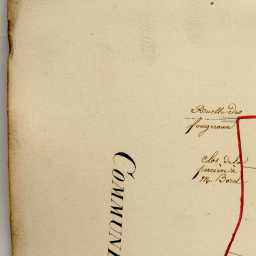 Ruelle des
fougeraux
Clos de la
M. Borel
COMMUNE